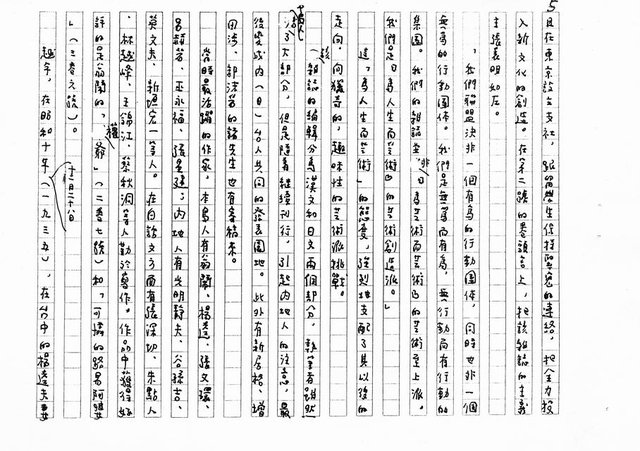 5
且在東京設立支社，跟留學生保持緊密的連絡，把全力投
入新文化的創造。在第二號的卷頭言上，把該雜誌的主義
主張表明如左。
「我們聯盟決非一個有為的行動團體，同時也非一個
無為的行動團體。我們是無為而有為，無行動而有行動的
集團。我們的雜誌並非『為藝術而藝術』的藝術至上派。
我們是『為人生而藝術』的藝術創造派。」
這「為人生而藝術」的態度，強烈地支配了其以後的
走向，向獵奇的，趣味性的藝術派挑戰。
該雜誌的編輯分為漢文和日文兩個部分，執筆者雖然
大部分，但是隨著繼續刊行，引起內地人的注意，最
後變成內（日）台人共同的發表園地。此外有新居格、增
田涉、郭沫若的諸先生也有寄稿來。
當時最活躍的作家，本島人有翁鬧、楊逵、張文環、
呂赫若、巫永福、張星建，內地人有光明靜夫、谷孫吉、
英文夫、新垣宏一等人。在白話文方面有張深切、朱點人
、林越峰、王錦江、蔡秋洞等人勤於寫作。作品中獲得好
評的是翁鬧的，「戇爺」（二卷七號）和，「可憐的路易阿婆
」（三卷六號）。
越年，在昭和十年（一九三五），在台中的楊逵夫妻
十二月二十八日